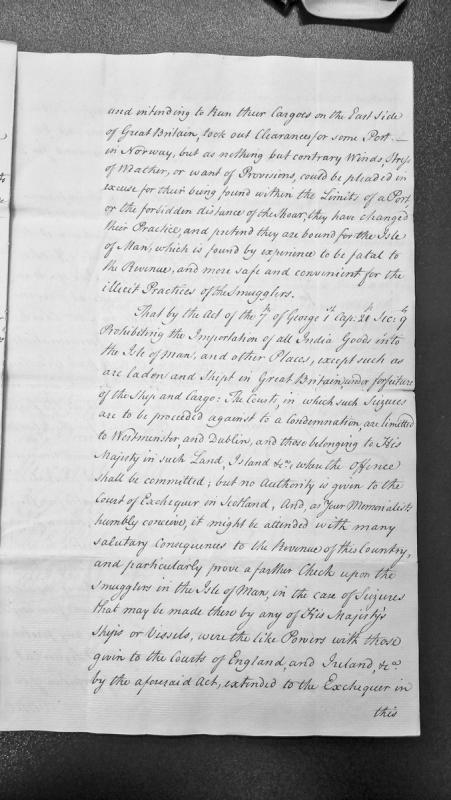 and intending to Run their Cargoes on the East Side
of Great Britain, took out Clearances for some Port —
in Norway, but as nothing but contrary Winds, Stress
of Weather, or want of Provisions, could be pleaded in
excuse for their being found within the Limits of a Port
or the forbidden distance of the Shoar, they have changed
their Practice, and pretend they are bound for the Isle
of Man, which is found by experience to be fatal to
the Revenue, and more safe and convenient for the
illicit Practices of the Smugglers.
That by the Act of the 7th of George 1st Cap: 21 Sec: 9
Prohibiting the Importation of all India Goods into
the Isle of Man, and other Places, except such as
are laden and Shipt in Great Britain, under forfeiture
of the Ship and Cargo: The Courts, in which such Seizures
are to be proceeded against to a Condemnation, are limitted
to Westminster, and Dublin, and those belonging to His
Majesty in such Land, Island &ca, where the Offence
shall be committed; but no Authority is given to the
Court of Exchequer in Scotland, And, as Your Memorialists
humbly conceive, it might be attended with many
salutary Consequences to the Revenue of this Country,
and particularly prove a farther Check upon the
Smugglers in the Isle of Man, in the case of Seizures
that may be made there by any of His Majesty's
Ships or Vessels, were the like Powers with those
given to the Courts of England, and Ireland, &ca
by the aforesaid Act, extended to the Exchequer in
this